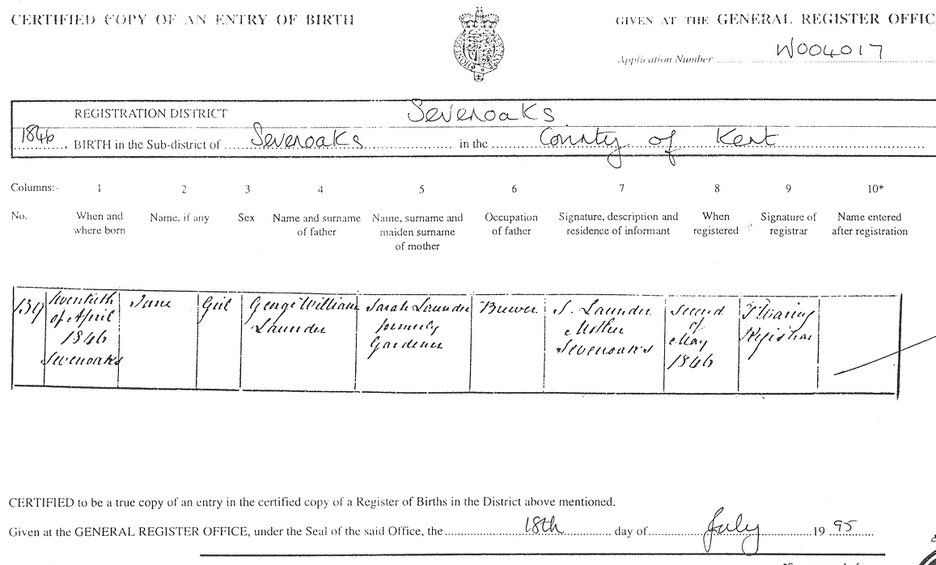 CERTIFIED COPY OF AN ENTRY OF BIRTH
GIVEN AT THE GENERAL REGISTER OFFIC
Application Number W004017
REGISTRATION DISTRICT Sevenoaks
1846 BIRTH in the Sub-district of Sevenoaks in the County of Kent
Columns:- 1 2 3 4 5 6 7 8 9 10*
No. When and where born Name, if any Sex Name and surname of father Name, surname and maiden surname of mother Occupation of father Signature, description and residence of informant When registered Signature of registrar Name entered after registration
139
Twentieth
of April
1846
Sevenoaks
Jane
Girl
George William
Launder
Sarah Launder
formerly
Gardener
Brewer
S. Launder
Mother
Sevenoaks
Second
of
May
1846
Registrar
CERTIFIED to be a true copy of an entry in the certified copy of a Register of Births in the District above mentioned.
Given at the GENERAL REGISTER OFFICE, under the Seal of the said Office, the 18th day of July 1995